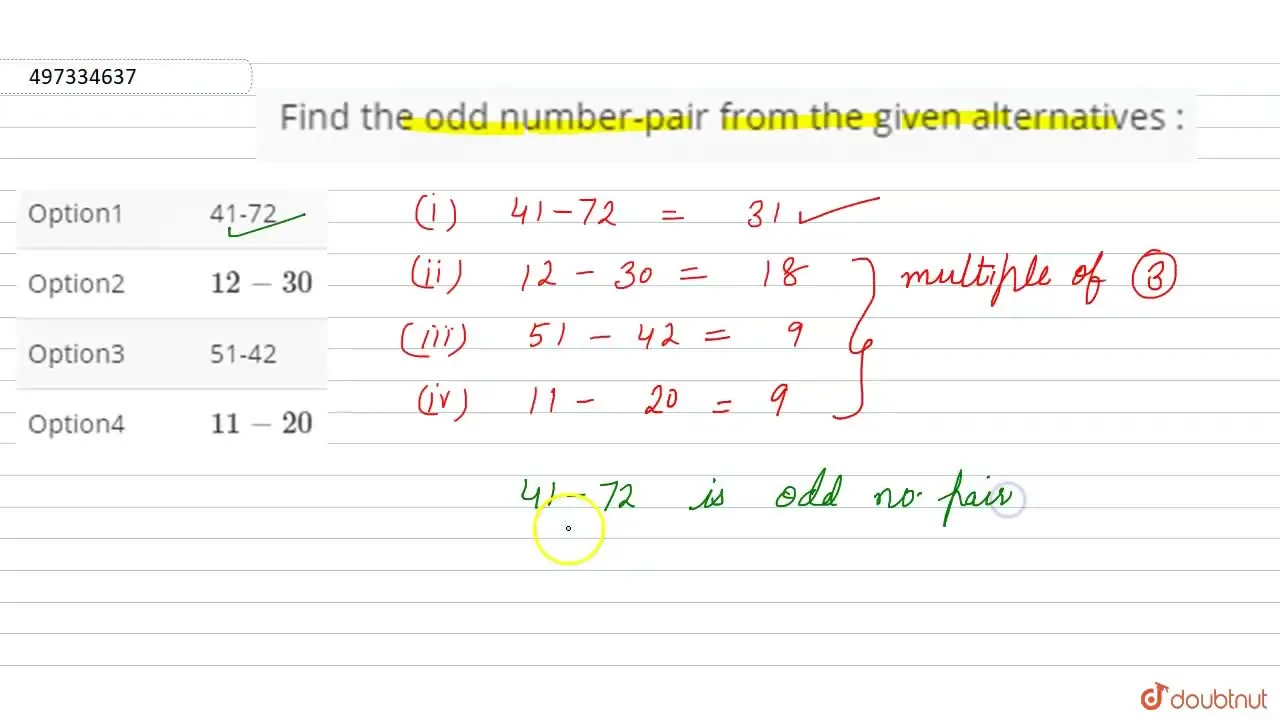 497334637
Find the odd number-pair from the given alternatives :
Option1 41-72
Option2 12 − 30
Option3 51-42
Option4 11 − 20
(i) 41 − 72 = 31
(ii) 12 − 30 = 18
(iii) 51 − 42 = 9
(iv) 11 − 20 = 9
multiple of 3
41 − 72 is odd no. pair
doubtnut